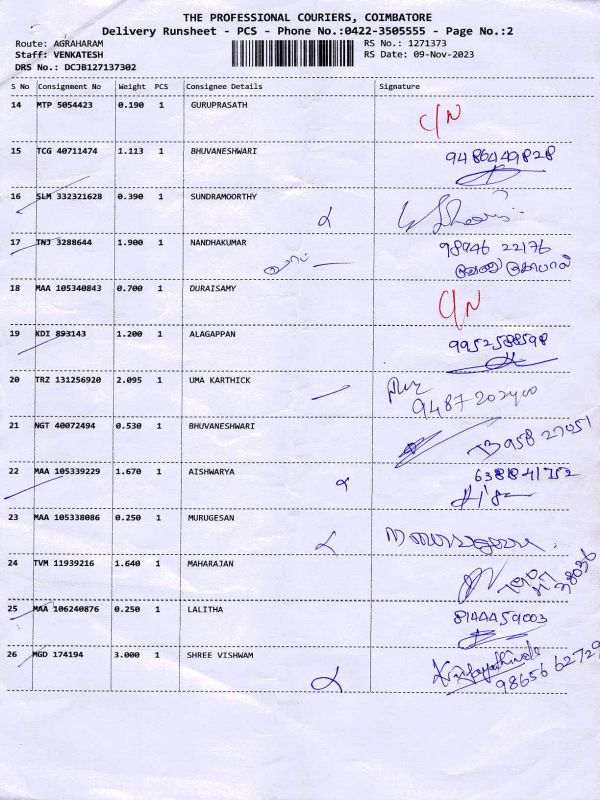 THE PROFESSIONAL COURIERS, COIMBATORE
Delivery Runsheet - PCS - Phone No.:0422-3505555 - Page No.:2
Route: AGRAHARAM RS No.: 1271373
Staff: VENKATESH RS Date: 09-Nov-2023
DRS No.: DCJB127137302
S No Consignment No Weight PCS Consignee Details Signature
14 MTP 5054423 0.190 1 GURUPRASATH C/N
15 TCG 40711474 1.113 1 BHUVANESHWARI 9486449828
16 SLM 332321628 0.390 1 SUNDRAMOORTHY
17 TNJ 3288644 1.900 1 NANDHAKUMAR 98946 22176
18 MAA 105340843 0.700 1 DURAISAMY C/N
19 KDI 893143 1.200 1 ALAGAPPAN 9952588598
20 TRZ 131256920 2.095 1 UMA KARTHICK
9487202400
21 NGT 40072494 0.530 1 BHUVANESHWARI
22 MAA 105339229 1.670 1 AISHWARYA
23 MAA 105338086 0.250 1 MURUGESAN
24 TVM 11939216 1.640 1 MAHARAJAN
25 MAA 106240876 0.250 1 LALITHA 8144459003
26 MGD 174194 3.000 1 SHREE VISHWAM
98656 62729